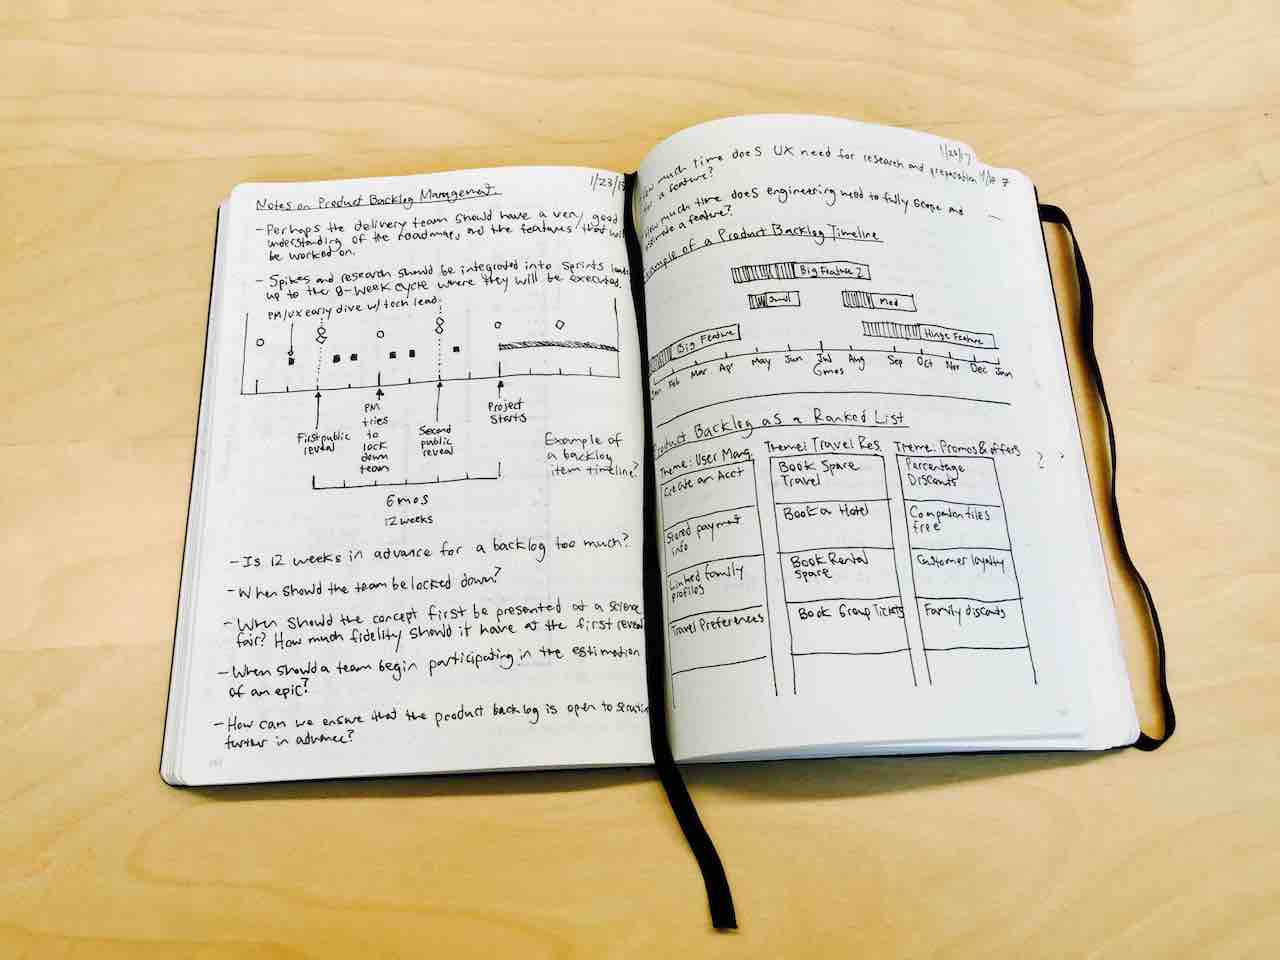 1/23/17
Notes on Product Backlog Management
- Perhaps the delivery team should have a very good
understanding of the roadmap, and the features that will
be worked on.
- Spikes and research should be integrated into Sprints
up to the 8-week cycle where they will be executed.
PM/UX early dive w/ tech lead
First public
reveal
PM
tries
to
lock
down
team
Second
public
reveal
Project
Starts
Example of
a backlog
item timeline?
6mos
12 weeks
- Is 12 weeks in advance for a backlog too much?
- When should the team be locked down?
- When should the concept first be presented at a science
fair? How much fidelity should it have at the first reveal
- When should a team begin participating in the estimation
of an epic?
- How can we ensure that the product backlog is open to
further in advance?
1/23/17
How much time does UX need for research and preparation
for a feature?
How much time does engineering need to fully scope and
estimate a feature?
Example of a Product Backlog Timeline
Big Feature 2
Small
Med
Big Feature
Huge Feature
Jan Feb Mar Apr May Jun Jul Aug Sep Oct Nov Dec Jan
6mos
Product Backlog as a Ranked List
Theme: User Mang.
Create an Acct
Stored payment
info
Linked family
profiles
Travel Preferences
Theme: Travel Res.
Book Space
Travel
Book a Hotel
Book Rental
Space
Book Group Tickets
Theme: Promos & offers
Percentage
Discounts
Companion flies
free
Customer loyalty
Family discounts